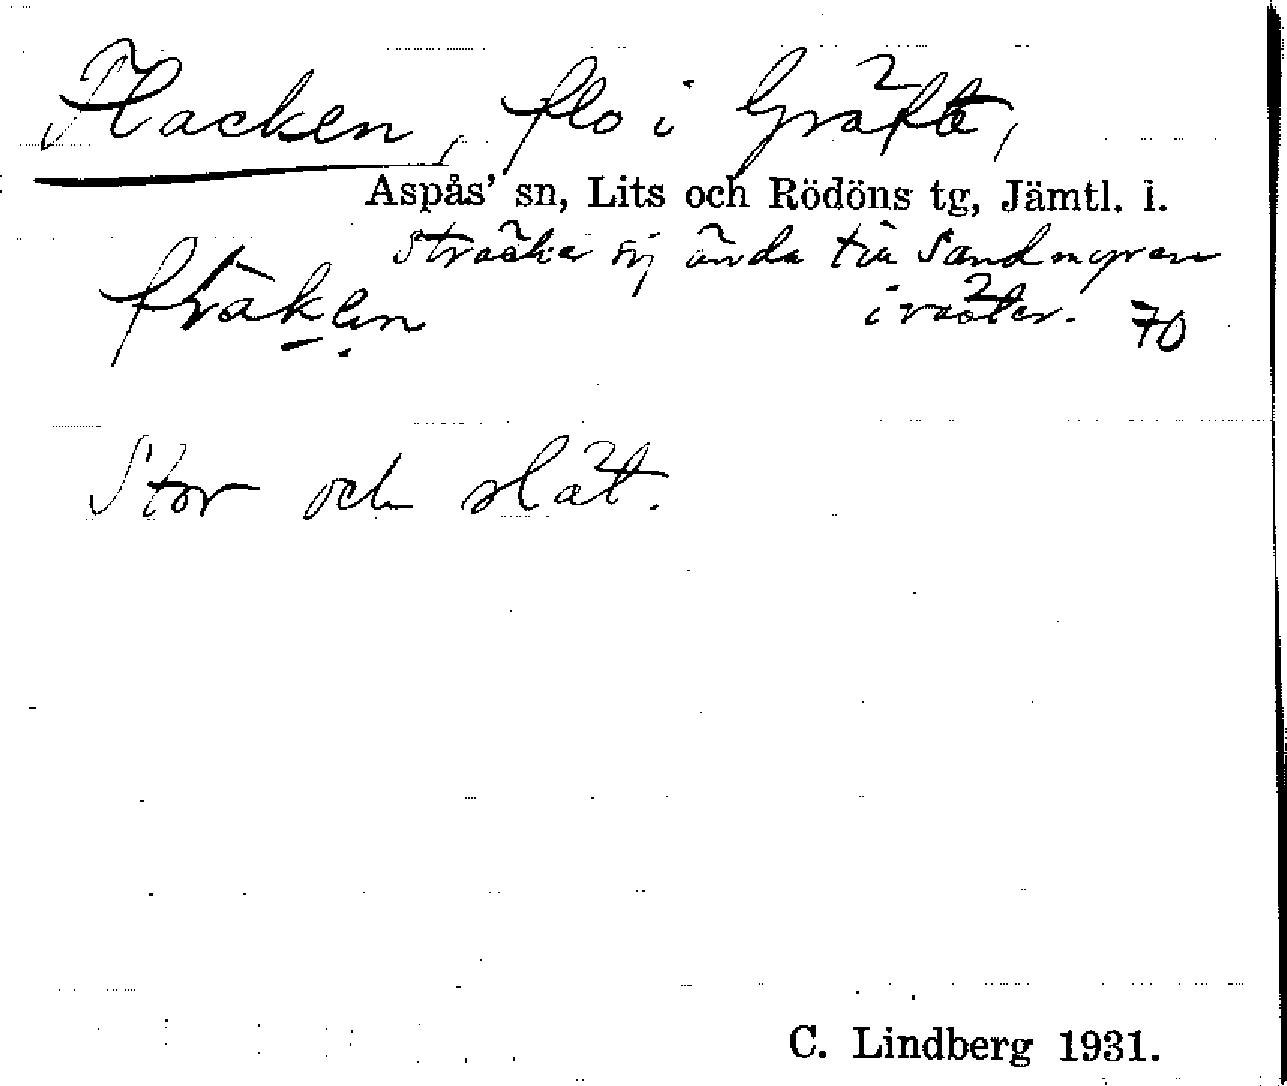 Flacken, flo i Gräfte,
Aspås' sn, Lits och Rödöns tg, Jämtl. l.
sträcker sig ända till Sandmyren
i väster. 70
Stor och slät.
C. Lindberg 1931.